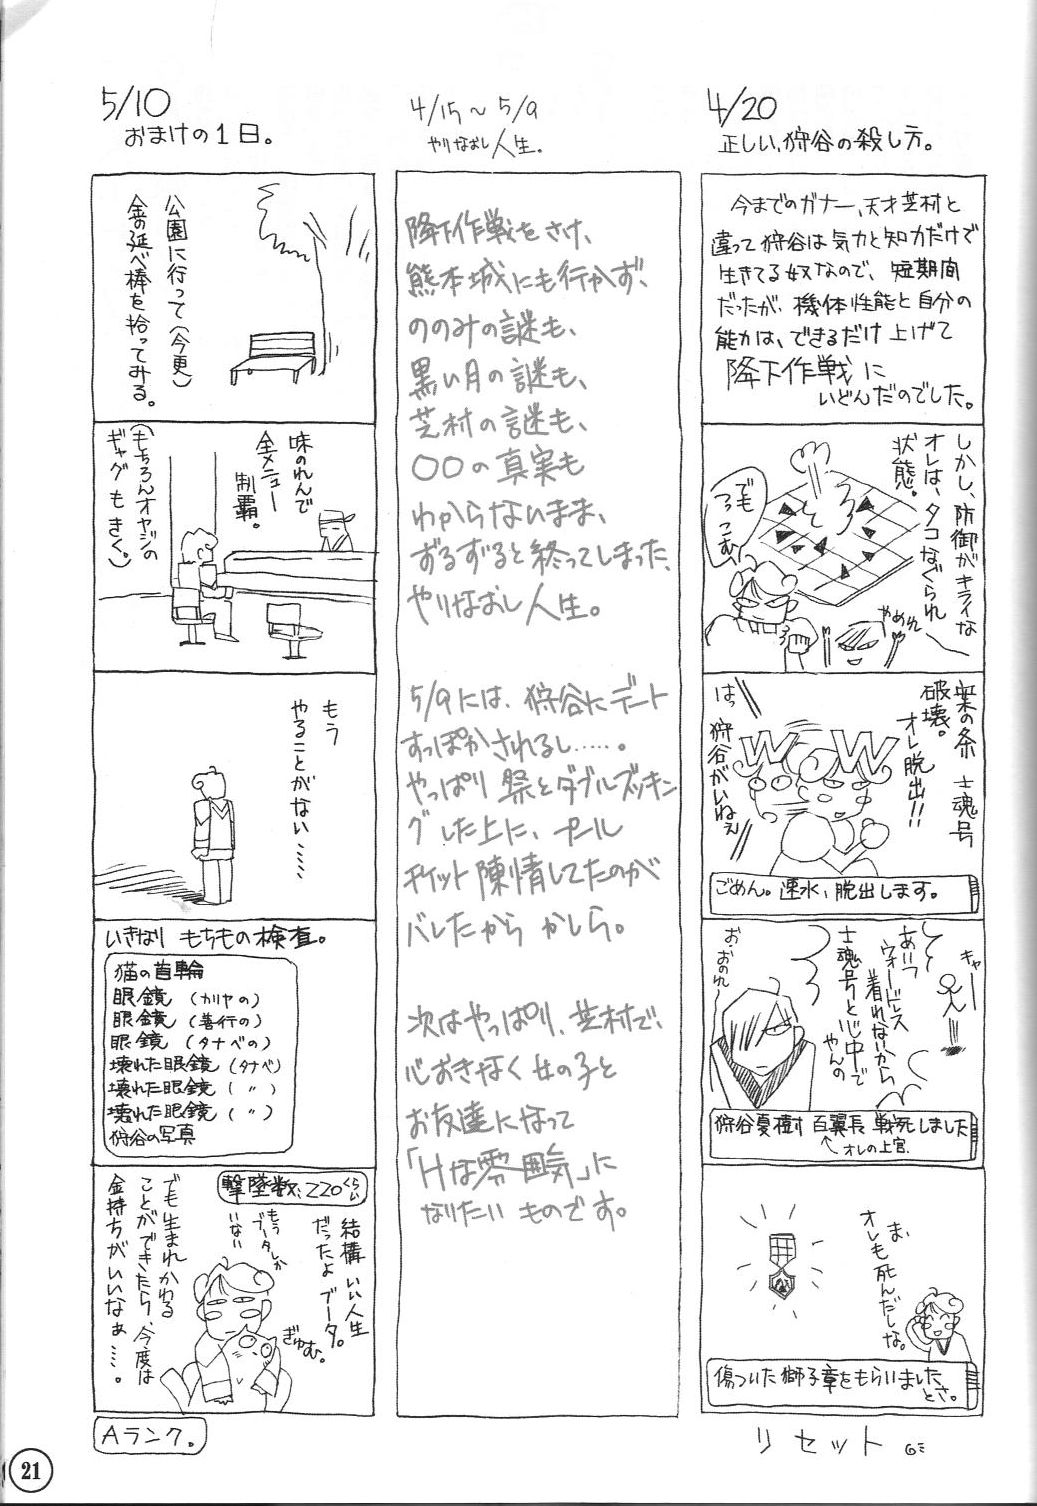 4/20
正しい、狩谷の殺し方。
今までのガナー、天才芝村と
違って狩谷は気力と知力だけで
生きてる奴なので、短期間
だったが、機体性能と自分の
能力は、できるだけ上げて
降下作戦に
いどんだのでした。
しかし、防御がキライな
オレは、タコなぐられ
状態。
でも
つっこむ
やめれ
士魂号
破壊。
オレ脱出!!
WWW
はっ
狩谷がいねぇ
ごめん。速水、脱出します。
キャー
あいつ
ウォードレス
着れないから
士魂号とじ中で
やんの
お・おのれ〜
狩谷夏樹 百翼長 戦死しました
↑オレの上官。
ま、
オレも死んだしな。
傷ついた獅子章をもらいました
とさ。
リセット
4/15〜5/9
やりなおし人生。
降下作戦をさけ、
熊本城にも行かず、
ののみの謎も、
黒い月の謎も、
芝村の謎も、
〇〇の真実も
わからないまま、
ずるずると終ってしまった、
やりなおし人生。
5/9には、狩谷にデート
すっぽかされるし……。
やっぱり 祭とダブルブッキン
グした上に、プール
チケット陳情してたのが
バレたから かしら。
次はやっぱり、芝村で、
心おきなく女の子と
お友達になって
「Hな雰囲気」に
なりたいものです。
5/10
おまけの1日。
公園に行って(今更)
金の延べ棒を拾ってみる。
味のれんで
全メニュー
制覇。
(もちろんオヤジの
ギャグもきく。)
もう
やることがない……
いきなり もちもの検査。
猫の首輪
眼鏡(カリヤの)
眼鏡(善行の)
眼鏡(タナベの)
壊れた眼鏡(タナベ)
壊れた眼鏡(〃)
壊れた眼鏡(〃)
狩谷の写真
撃墜数、220くらい
結構いい人生
だったよ ブータ。
もう
ブータしか
いない
ぎゅむ。
でも生まれかわる
ことができたら、今度は
金持ちがいいなぁ…。
Aランク。
21